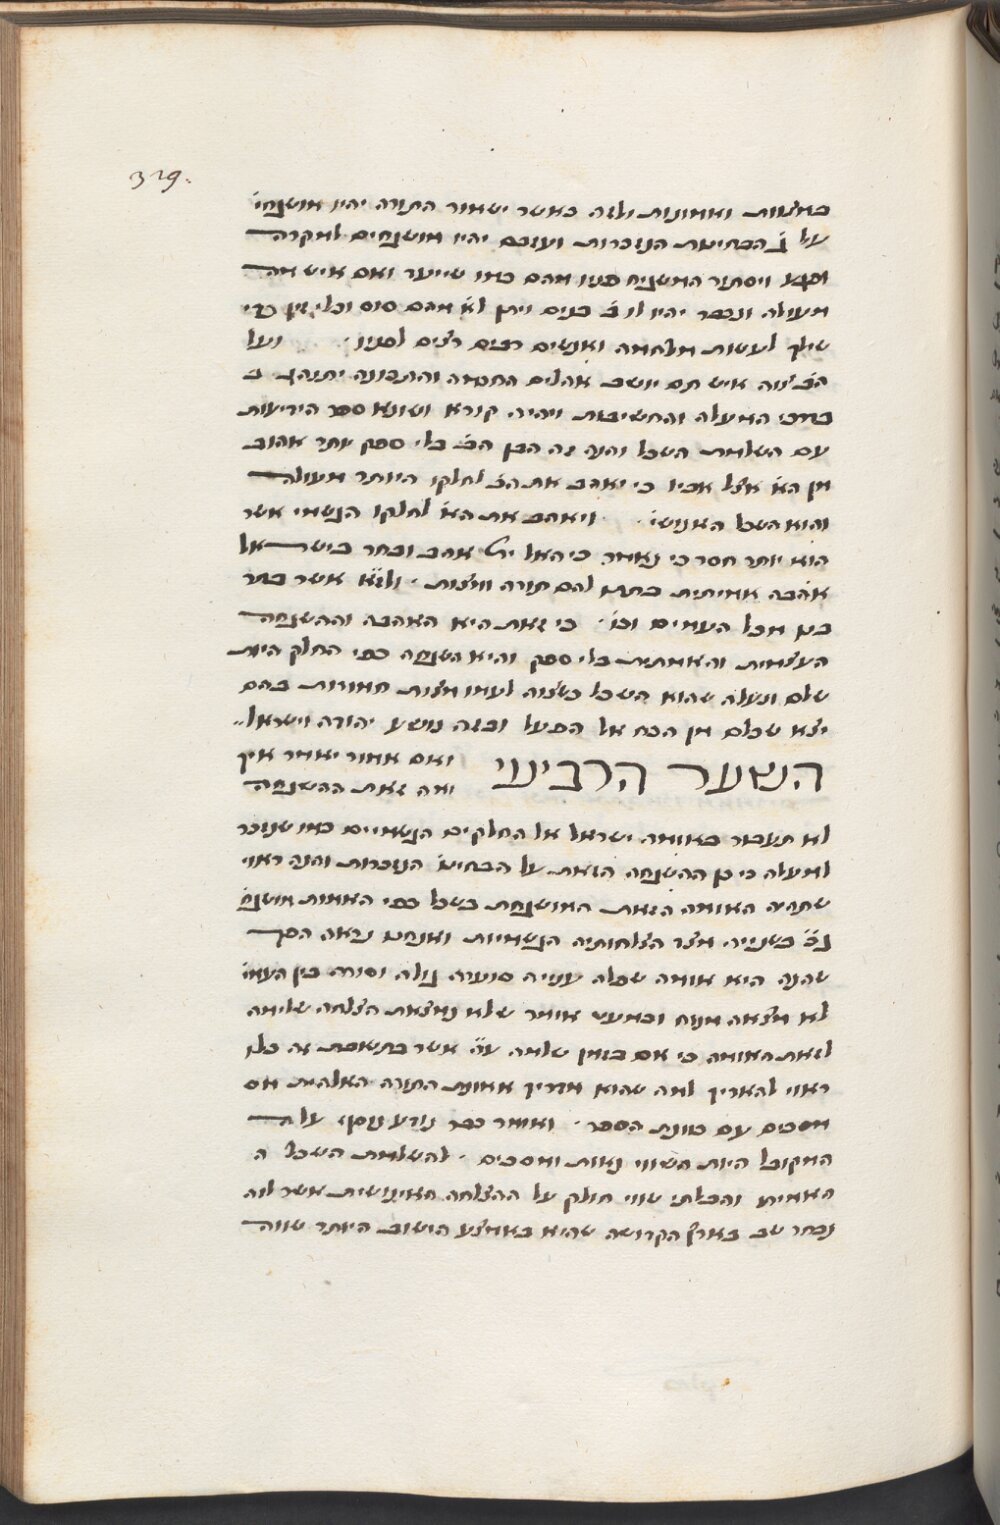 329.
במצוות ואמונות ולזה כאשר ישמור התורה יהיו מושגחי'
על ב' הבחינות הנזכרות ועוזבם יהיו מושגחים למקרה
ויסתר המשגיח פניו מהם כמו שייעד ואם איש מה
מעולה ונכבד יהיו לו ב' בנים ויתן לא' מהם סוס וכלי זין כדי
שילך לעשות מלחמה ואנשים רבים רצים לפניו ועל
הב' צוה איש תם יושב אהלים החכמה והתבונה יתנהג ב
בדרכי המעלה והחשיבות ויהיה קורא ושונא ספר היריעות
עם השלמת השכל והנה זה הבן הב' בלי ספק יותר אהוב
מן הא' אצל אביו כי יאהב את הב' לחלקו היותר מעולה
והוא השכל האנושי' ויאהב את הא' לחלקו הגשמי אשר
הוא יותר חסר כי נאמר כי האל ית' אהב ובחר בישראל
אהבה אמיתית בתתו להם תורה ומצות ולז"א אשר בחר
בנו מכל העמים וכו' כי זאת היא האהבה וההשגחה
העצמית והאמתית בלי ספק והיא השגחה כפי החלק היות
שלם ונעלה שהוא השכל כשצוה לעמו מצות חמורות בהם
יצא שכלם מן הכח אל הפעל ובזה נושע יהודה וישראל
השער הרביעי ואם אמור יאמר איך
ומה זאת ההשגחה
לא תעבור באומה ישראל אל החלקים הגשמיים כמו שנזכר
למעלה כי מן ההשגחה הזאת על הבחינו' הנזכרות והנה ראוי
שתהיה האומה הזאת המושגחת בשכל כפי האמות מושגח'
ג"כ בשנייה מצד הצלחותיה הגשמיות ואנחנו נראה הפך
שהנה היא אומה שפלה ענייה סוערה גולה וסורה בין העמי'
לא מצאה מנוח וכמעט אומר שלא נמצאת הצלחה שלימה
לזאת האומה כי אם בזמן שלמה ע"ה אשר בתשובת זה כלו
ראוי להאריך למה שהוא מדריך אמונת התורה האלהית אם
מסכים עם כוונת הספר ואומר כבר נודע נוסף על ה
המקובל היות השווי נאות ומסכים להשלמת השכל ה
האמיתי והבלתי שווי חולק על ההצלחה האנושית אשר לזה
נבחר שב בארץ הקדושה שהיא באמצע הישוב היותר שווה